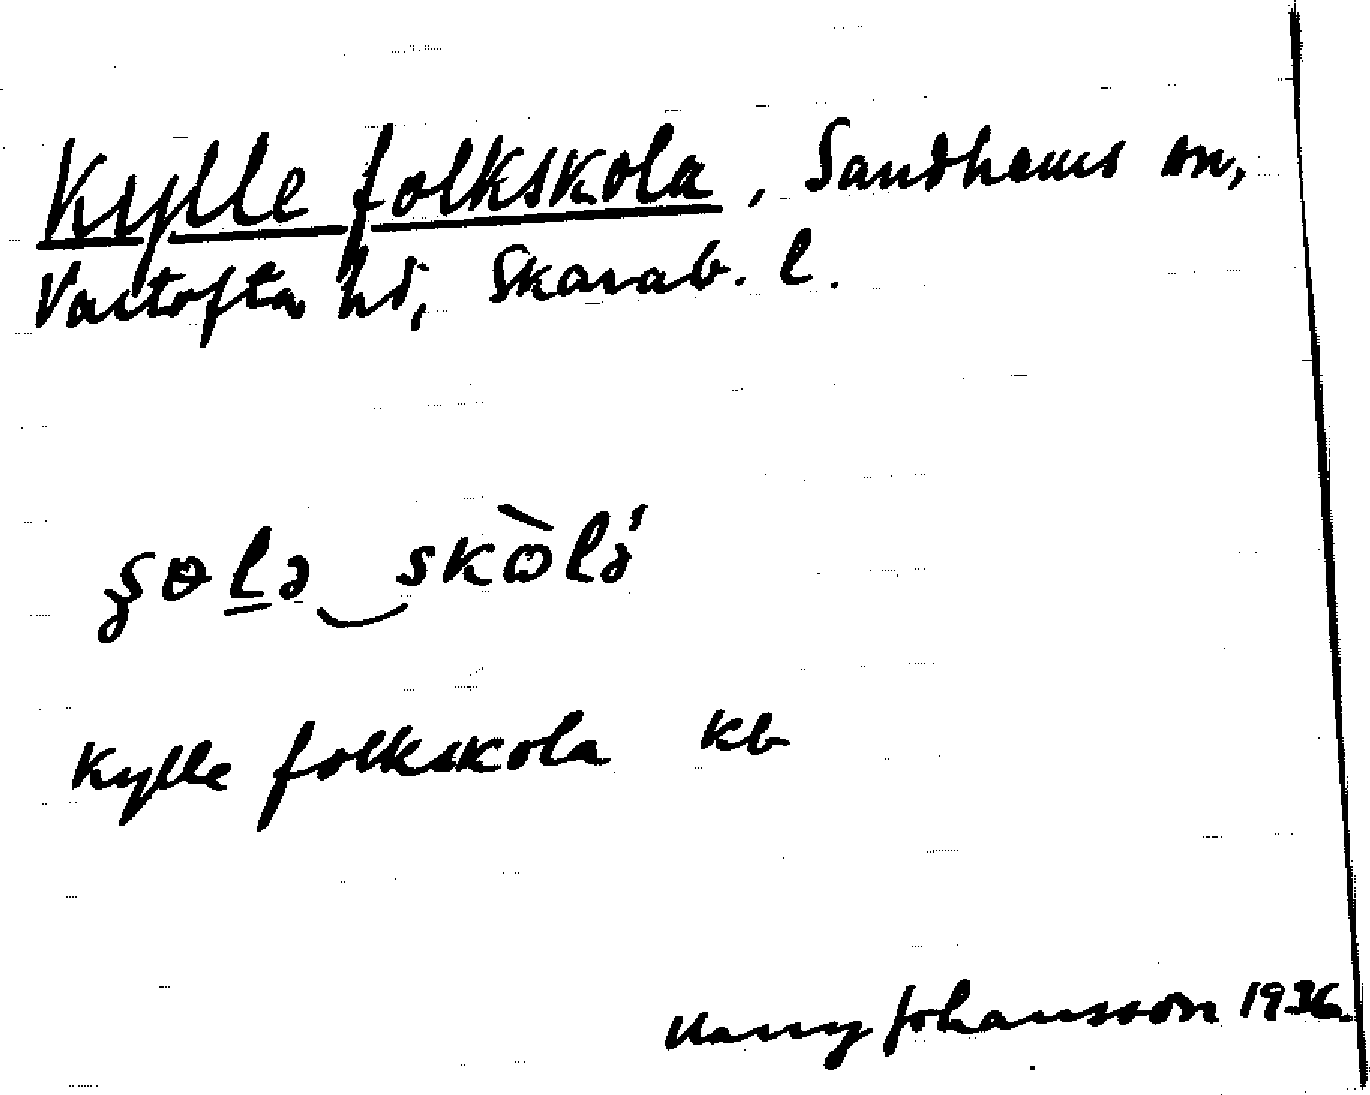 Kylle folkskola, Sandhems sn,
Vartofta hd, Skarab. l.
ʂɵlə skòlə
Kylle folkskola kb
Harry Johansson 1936.